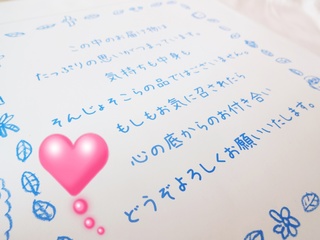 この中のお届け物は
たっぷりの思いがつまっています。
気持ちも中身も
そんじょそこらの品ではございません。
もしもお気に召されたら
心の底からのお付き合い
どうぞよろしくお願いいたします。